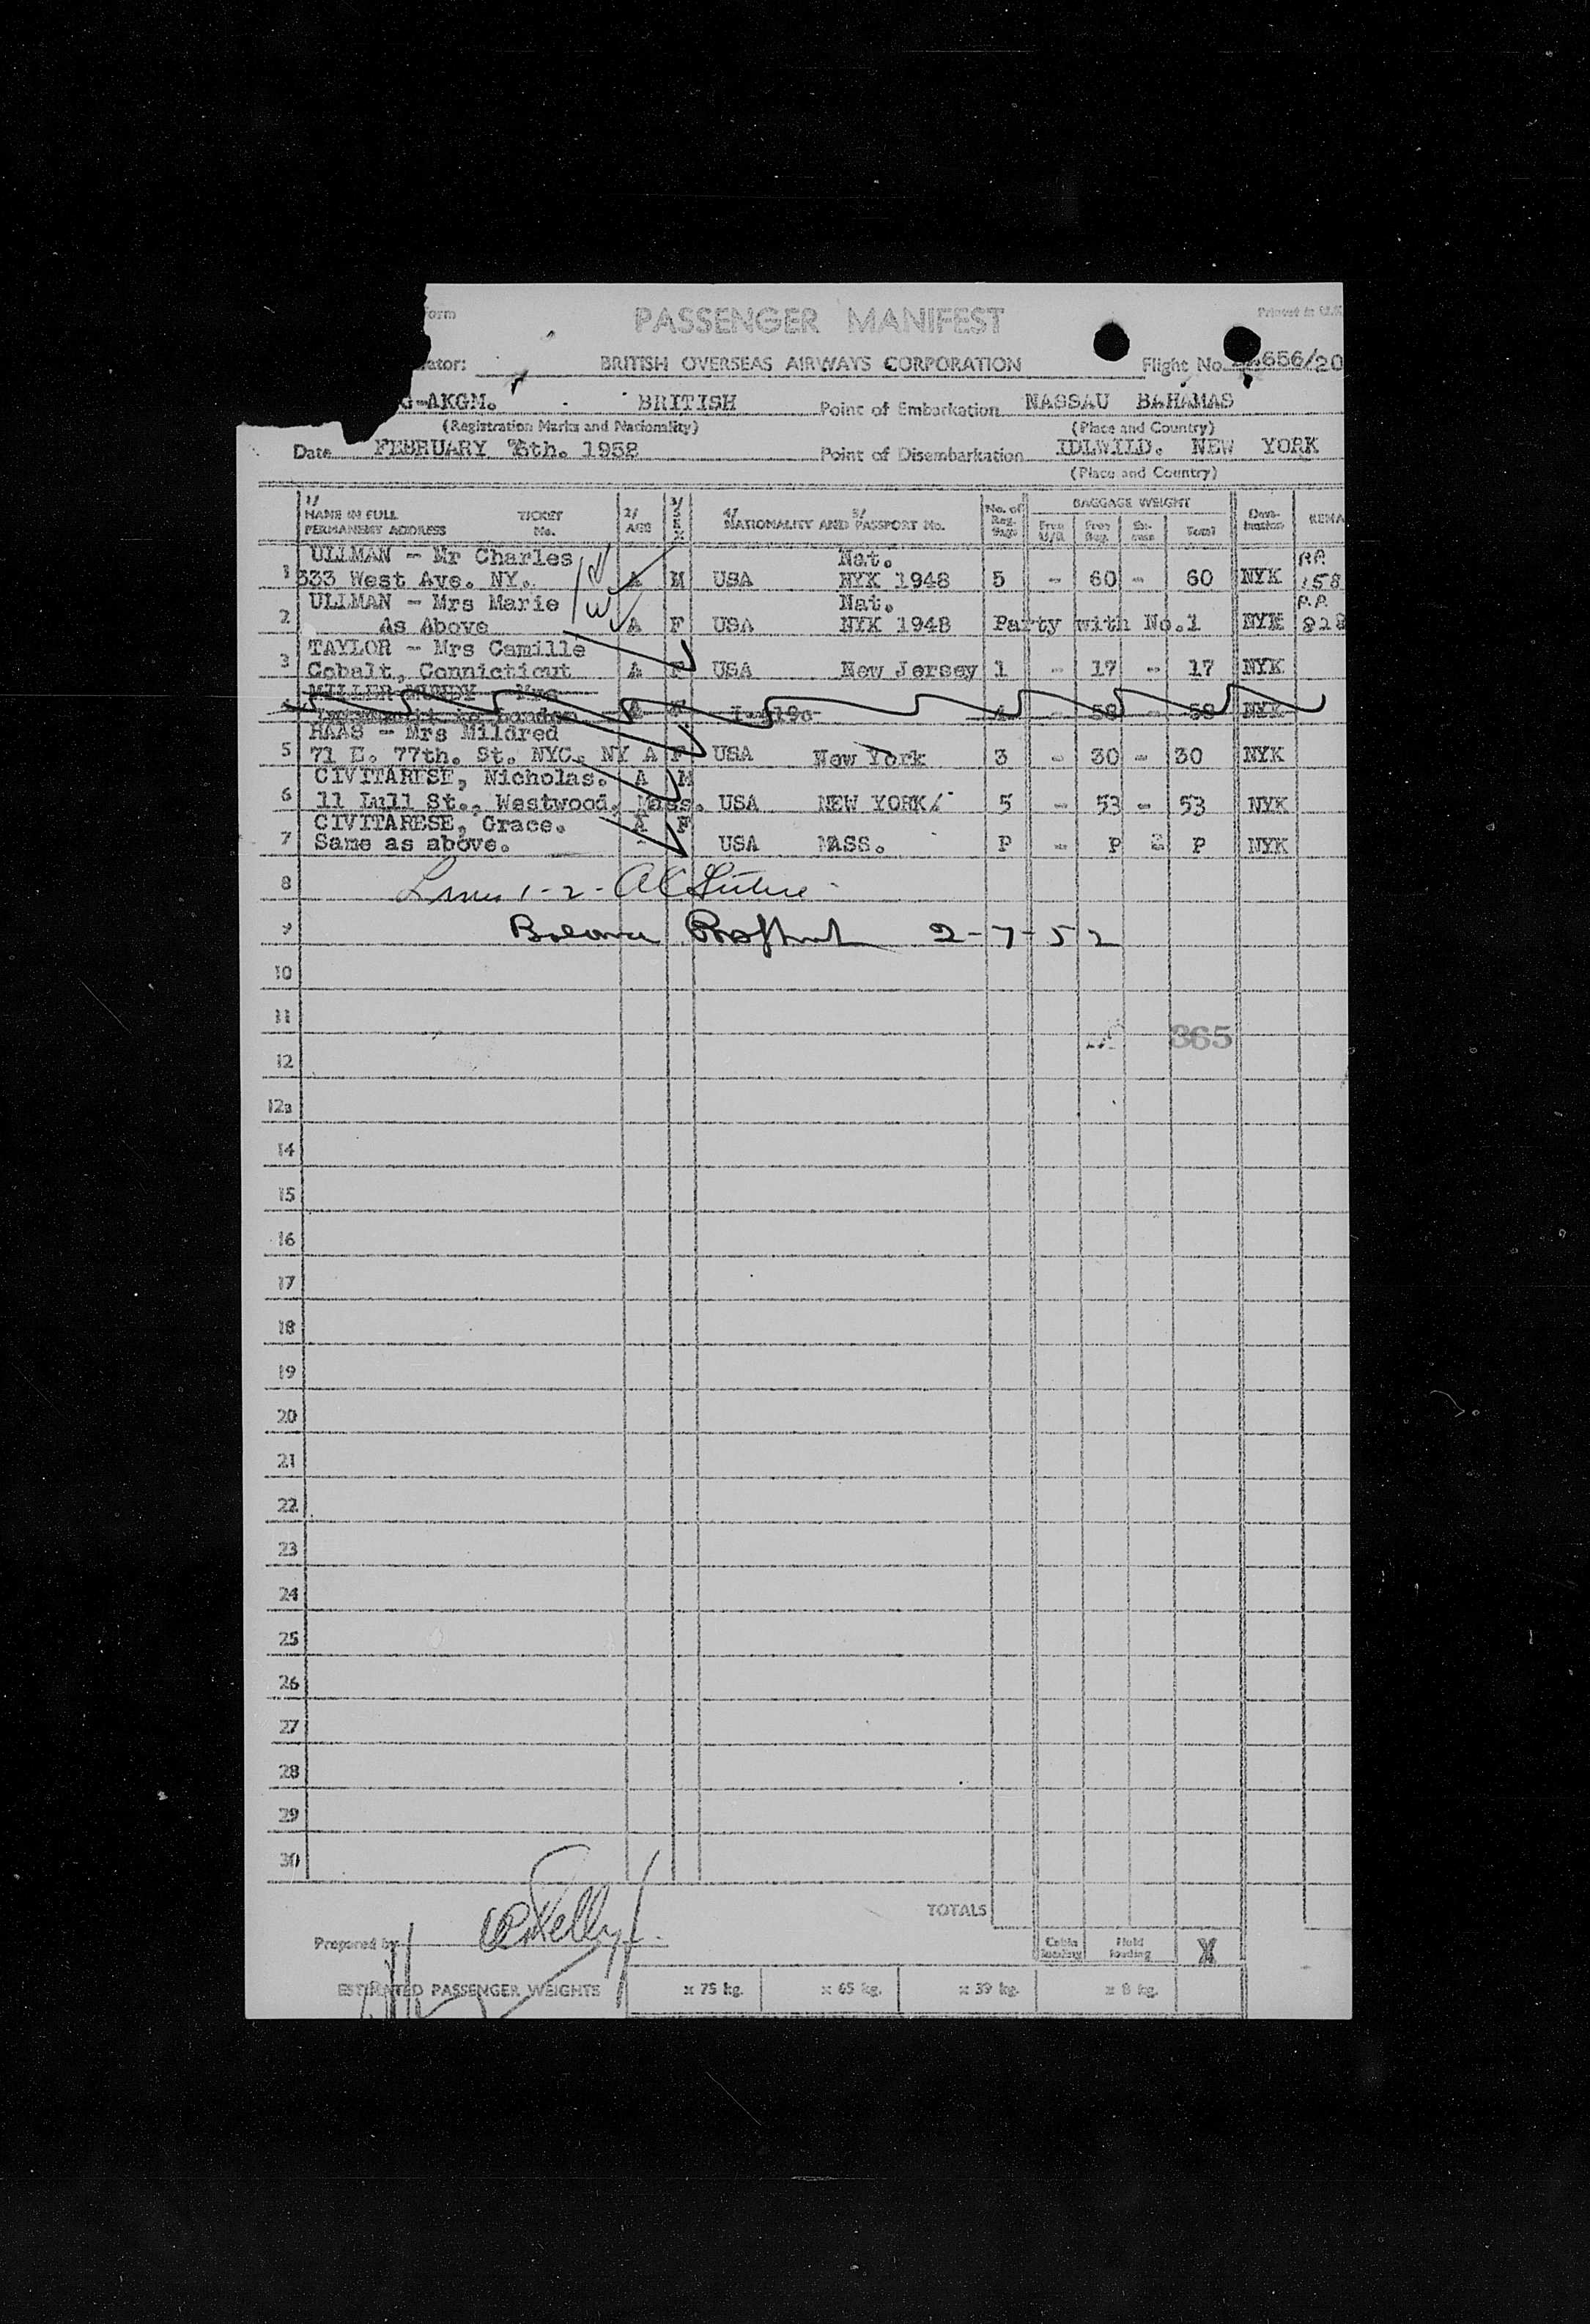 Form PASSENGER MANIFEST Printed in U.K.
BRITISH OVERSEAS AIRWAYS CORPORATION Flight No. 656/20
G-AKGM. BRITISH Point of Embarkation NASSAU BAHAMAS
(Registration Marks and Nationality) (Place and Country)
Date FEBRUARY 6th. 1952 Point of Disembarkation IDLWILD. NEW YORK
(Place and Country)
1/ NAME IN FULL PERMANENT ADDRESS TICKET No. 2/ AGE 3/ SEX 4/ NATIONALITY AND 5/ PASSPORT No. No. of Reg. Bags. BAGGAGE WEIGHT Free U/R Free Reg. Ex-cess Total Desti-nation REMA
ULLMAN - Mr Charles Nat. P.P.
1 333 West Ave. NY. A M USA NYK 1948 5 - 60 - 60 NYK 158
ULLMAN - Mrs Marie Nat. P.P.
2 As Above A F USA NYK 1948 Party with No.1 NYK 828
TAYLOR - Mrs Camille
3 Cobalt, Connicticut A F USA New Jersey 1 - 17 - 17 NYK
MILLER MUNDY - Mrs
4 London - 58 - 58 NYK
HAAS - Mrs Mildred
5 71 E. 77th. St. NYC. NY A F USA New York 3 - 30 - 30 NYK
CIVITARESE, Nicholas. A M
6 11 Lull St., Westwood, Mass. USA NEW YORK/ 5 - 53 - 53 NYK
CIVITARESE, Grace. A F
7 Same as above. USA MASS. P - P P NYK
8 Lines 1-2-
9 Balance 2-7-52
10
11 365
12
12a
14
15
16
17
18
19
20
21
22
23
24
25
26
27
28
29
30
TOTALS
Prepared by Kelly Cabin loading Hold loading X
ESTIMATED PASSENGER WEIGHTS x 75 kg. x 65 kg. x 39 kg. x 8 kg.